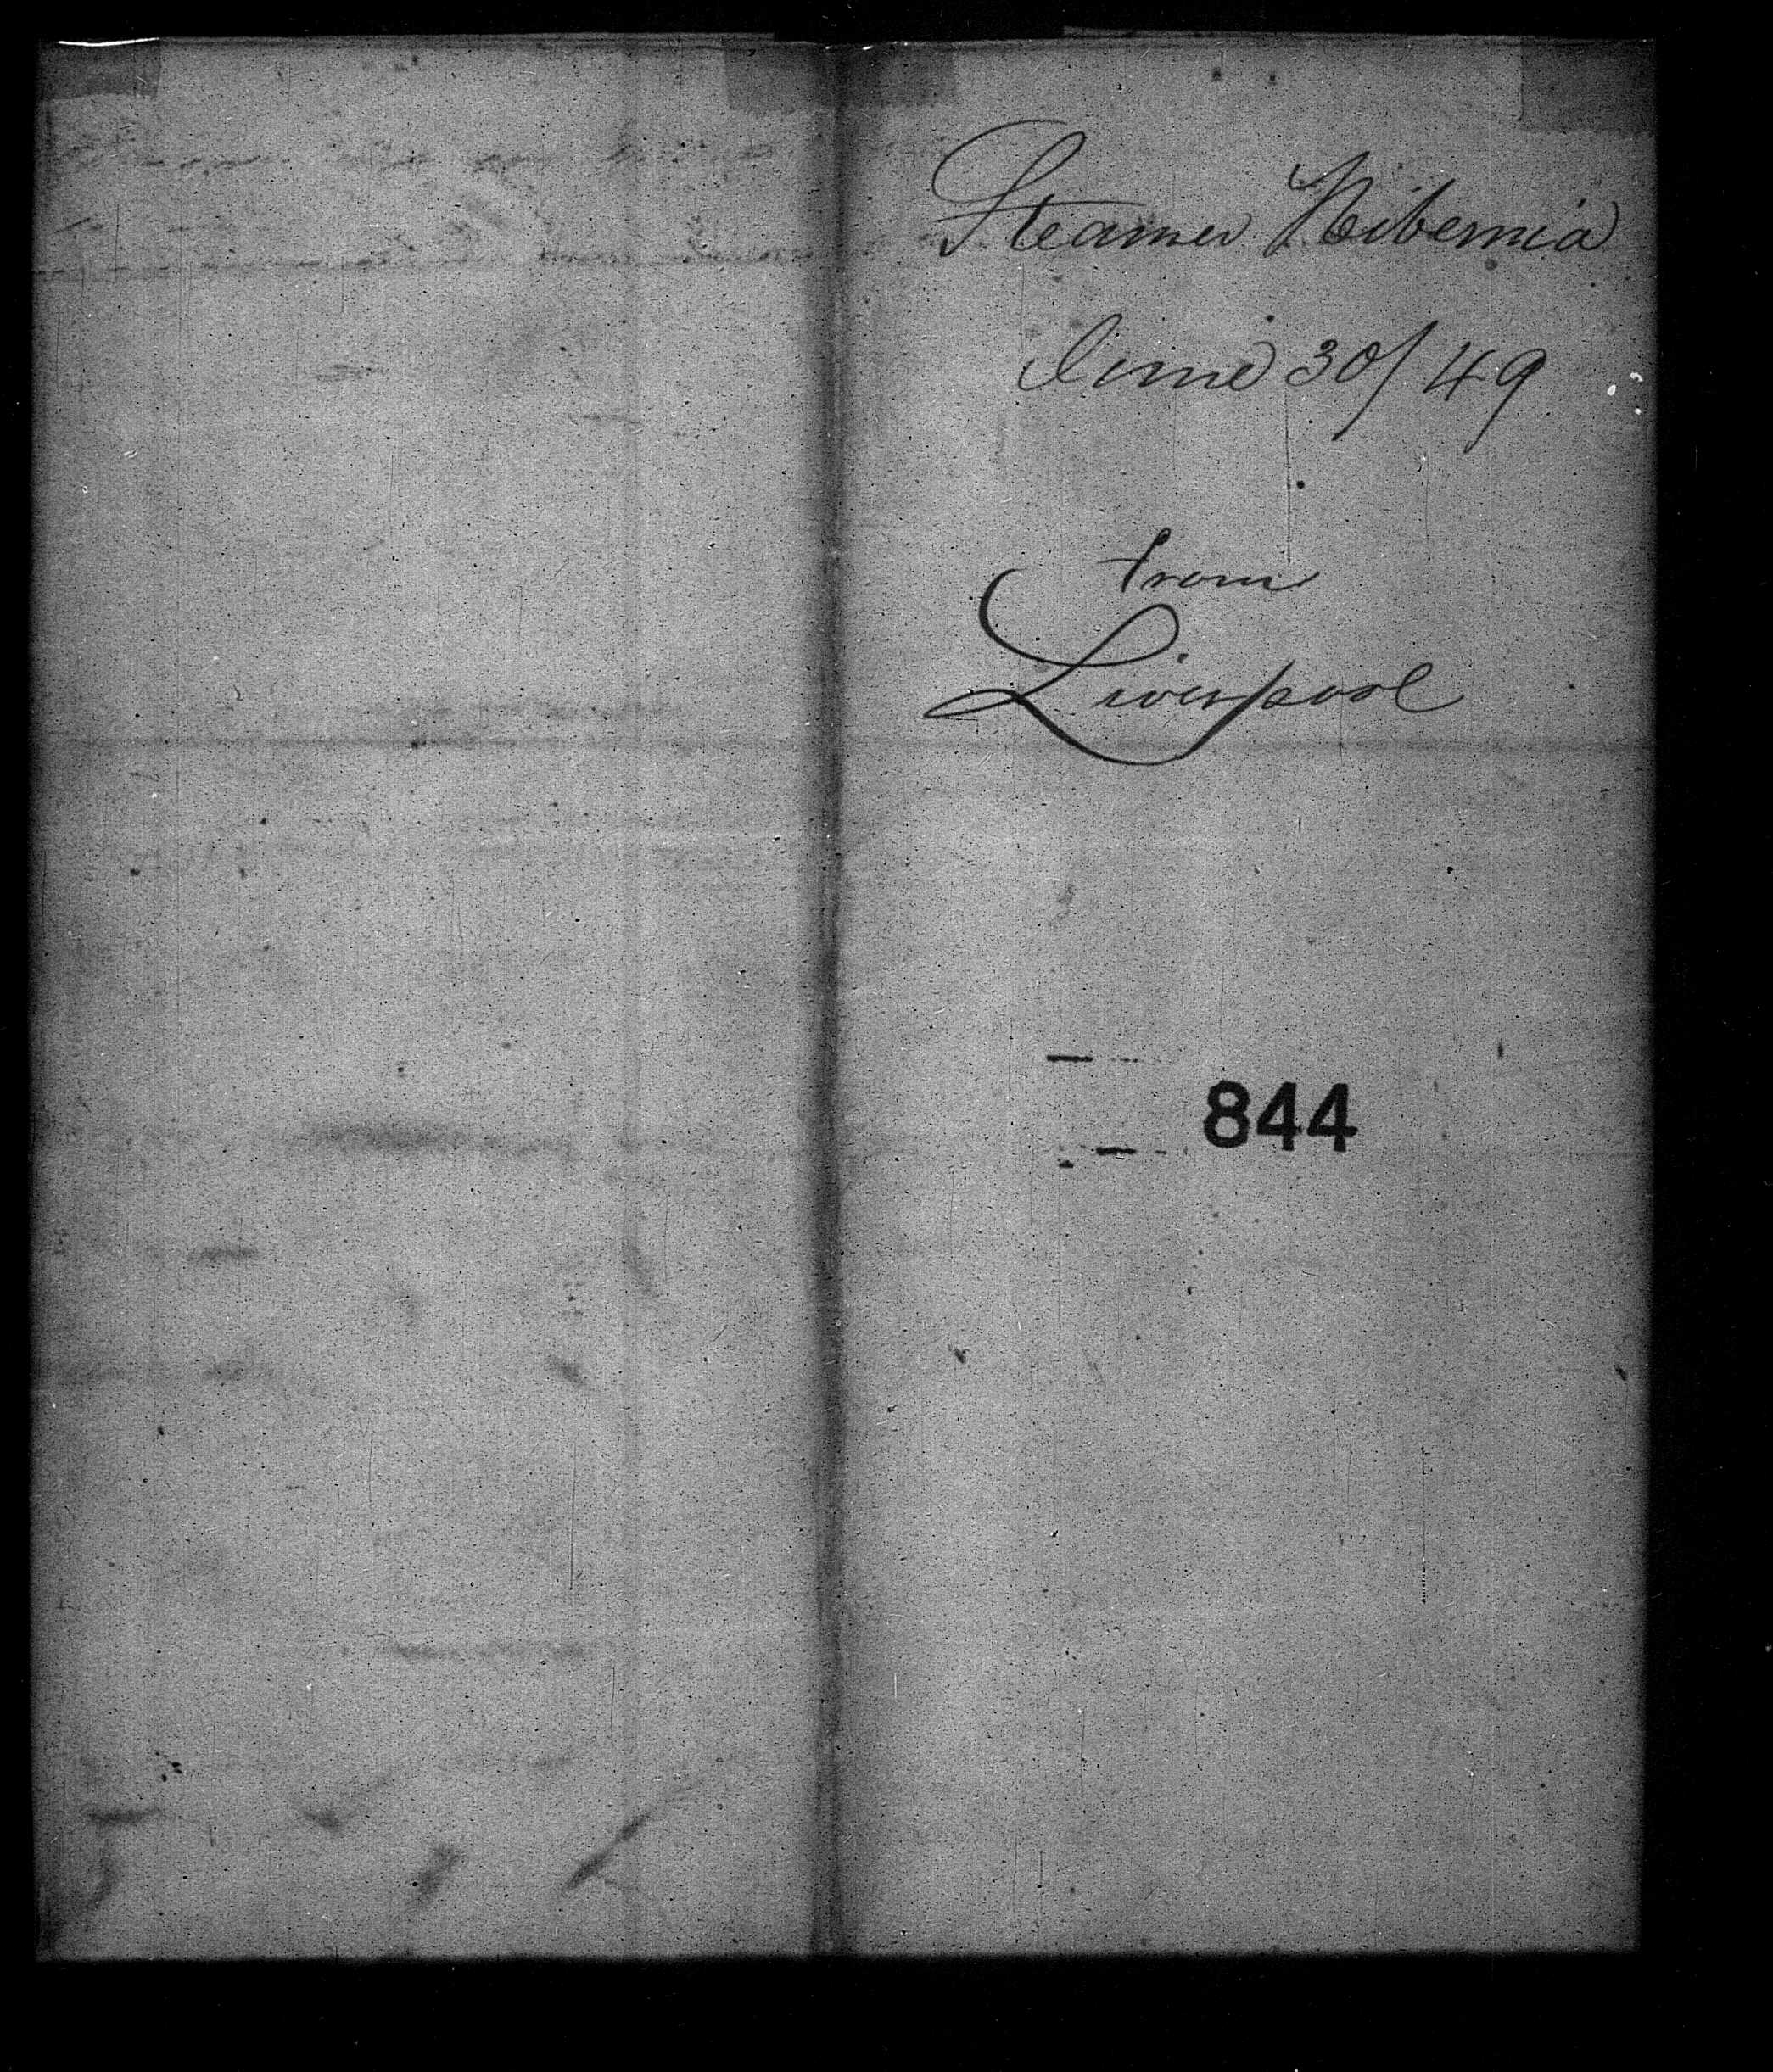 Steamer Hibernia
June 30/49
from
Liverpool
844